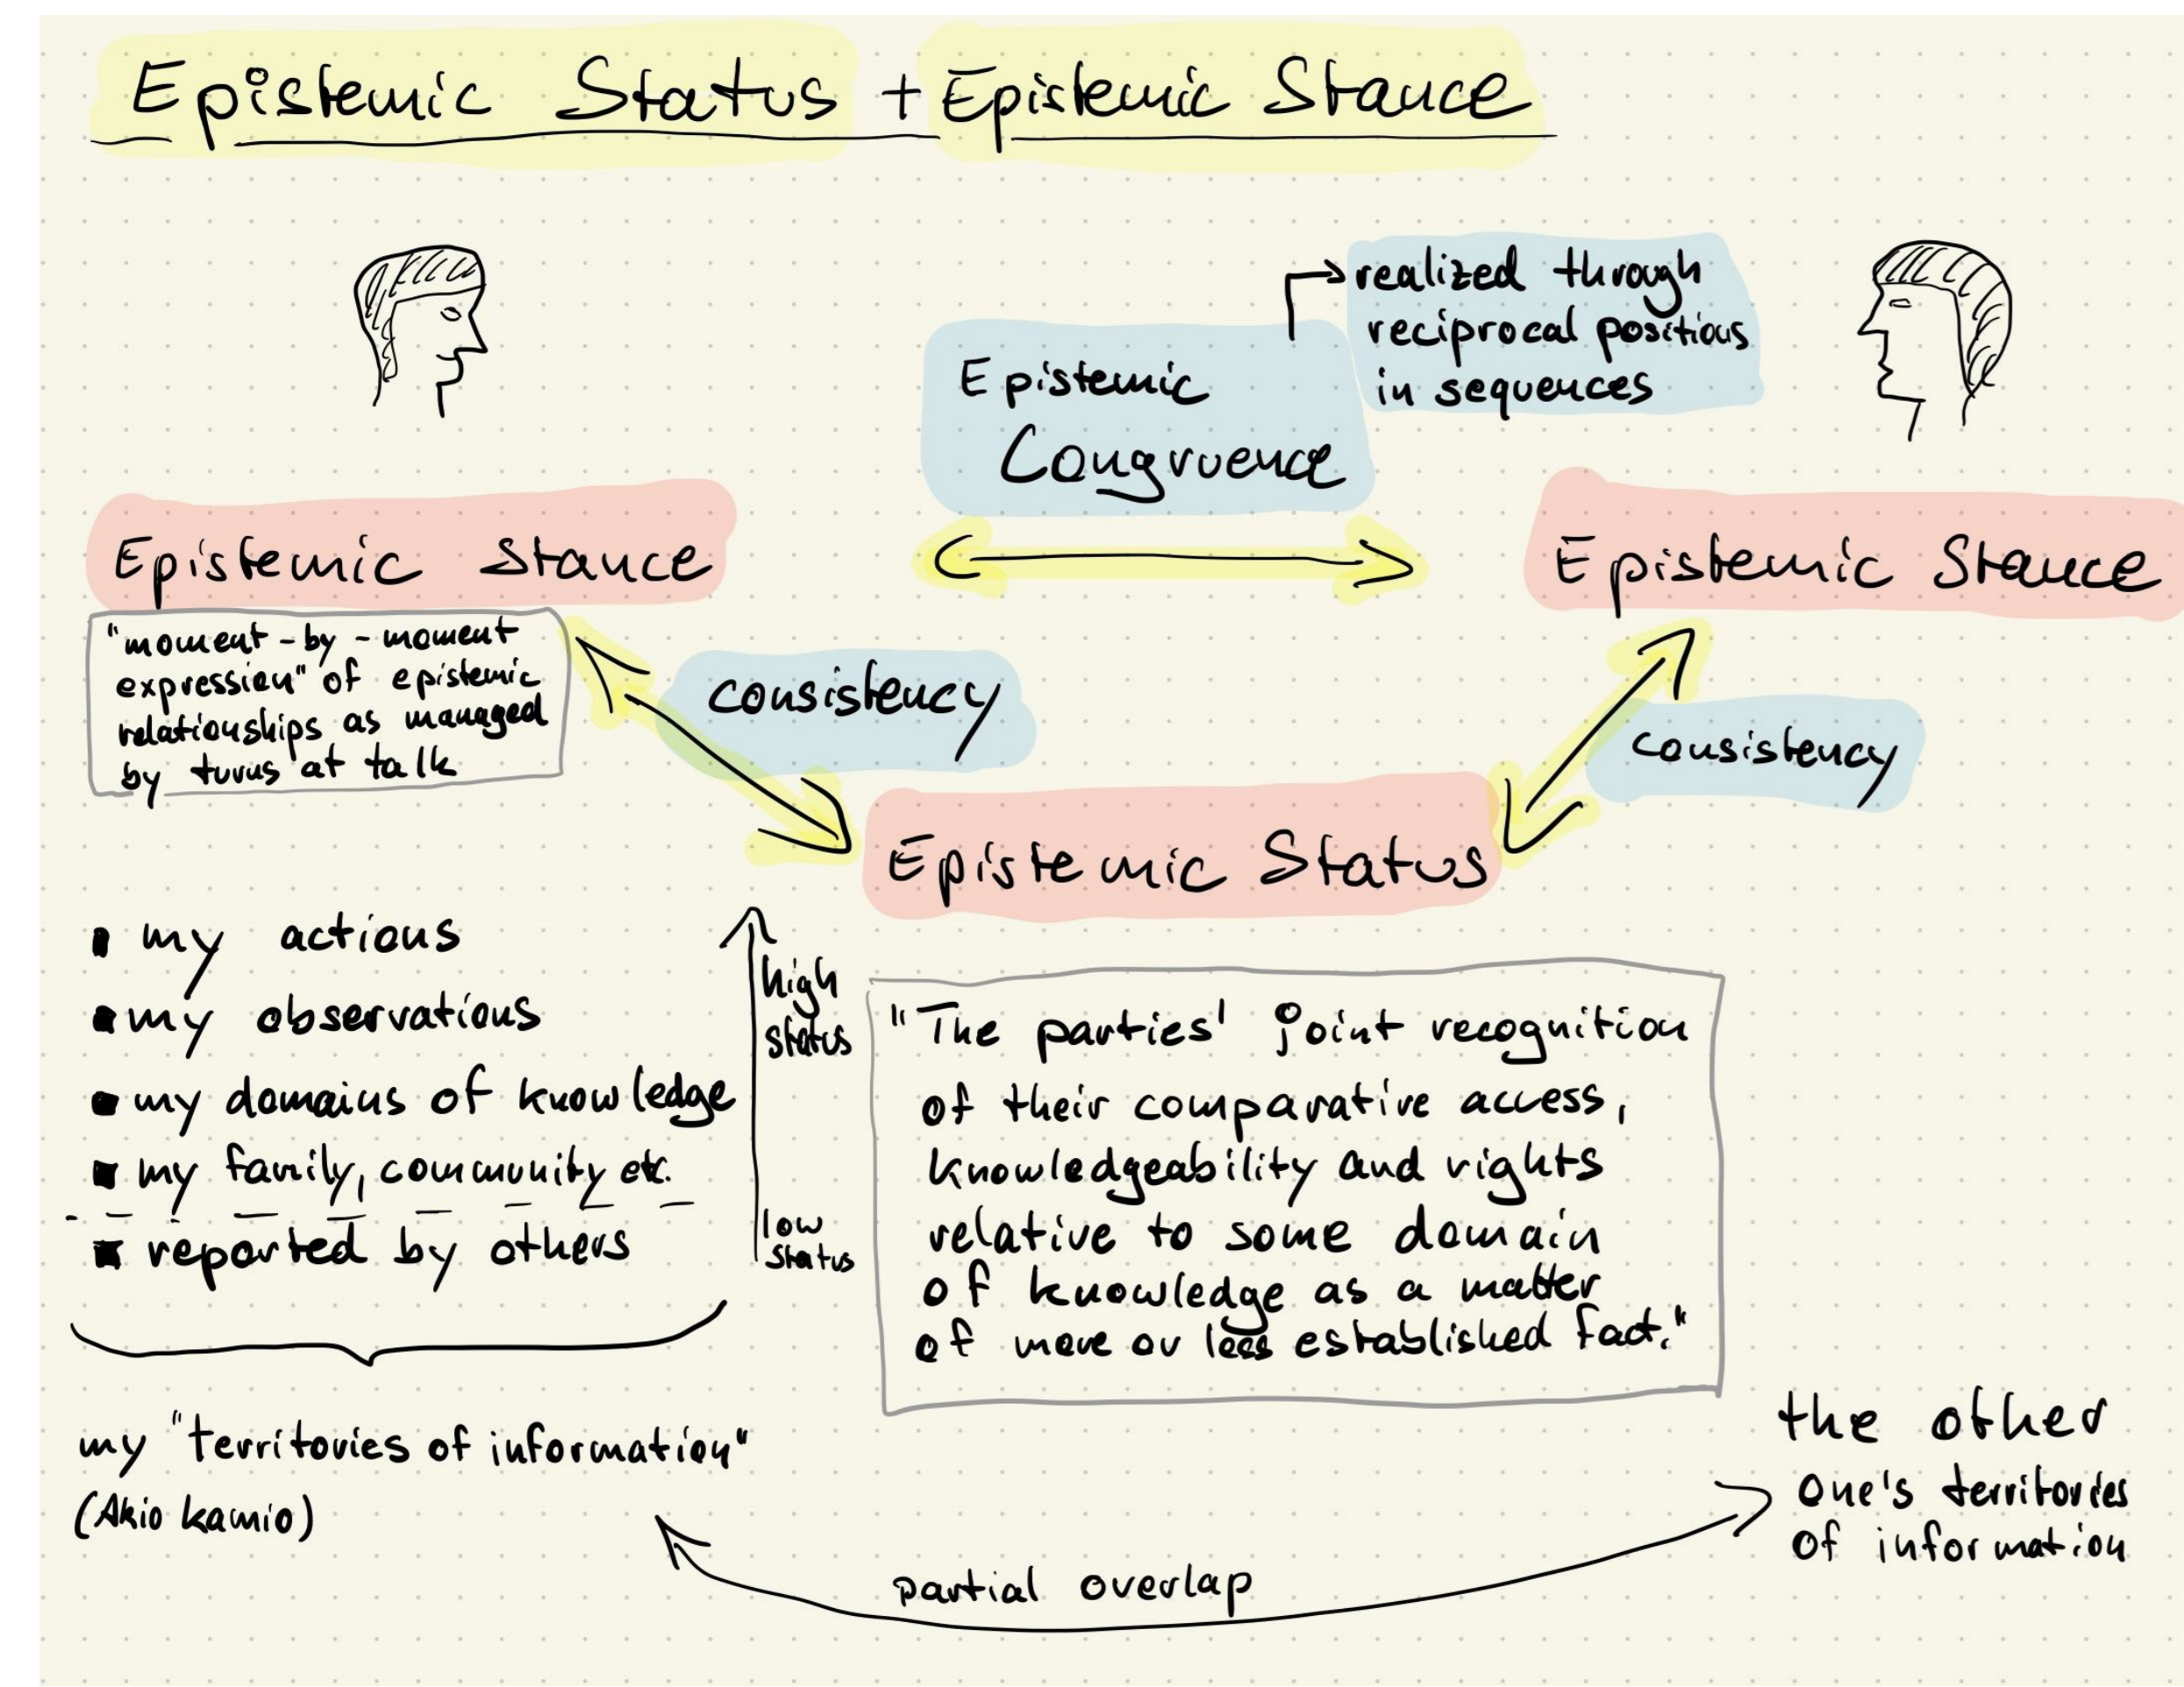 Epistemic Status + Epistemic Stance
realized through
reciprocal positions
in sequences
Epistemic
Congruence
Epistemic Stance
Epistemic Stance
"moment-by-moment
expression" of epistemic
relationships as managed
by turns at talk
consistency
consistency
Epistemic Status
▪ my actions
▪ my observations
▪ my domains of knowledge
▪ my family, community etc.
▪ reported by others
high
status
low
status
"The parties' joint recognition
of their comparative access,
knowledgeability and rights
relative to some domain
of knowledge as a matter
of more or less established fact."
my "territories of information"
(Akio Kamio)
the other
one's territories
of information
partial overlap